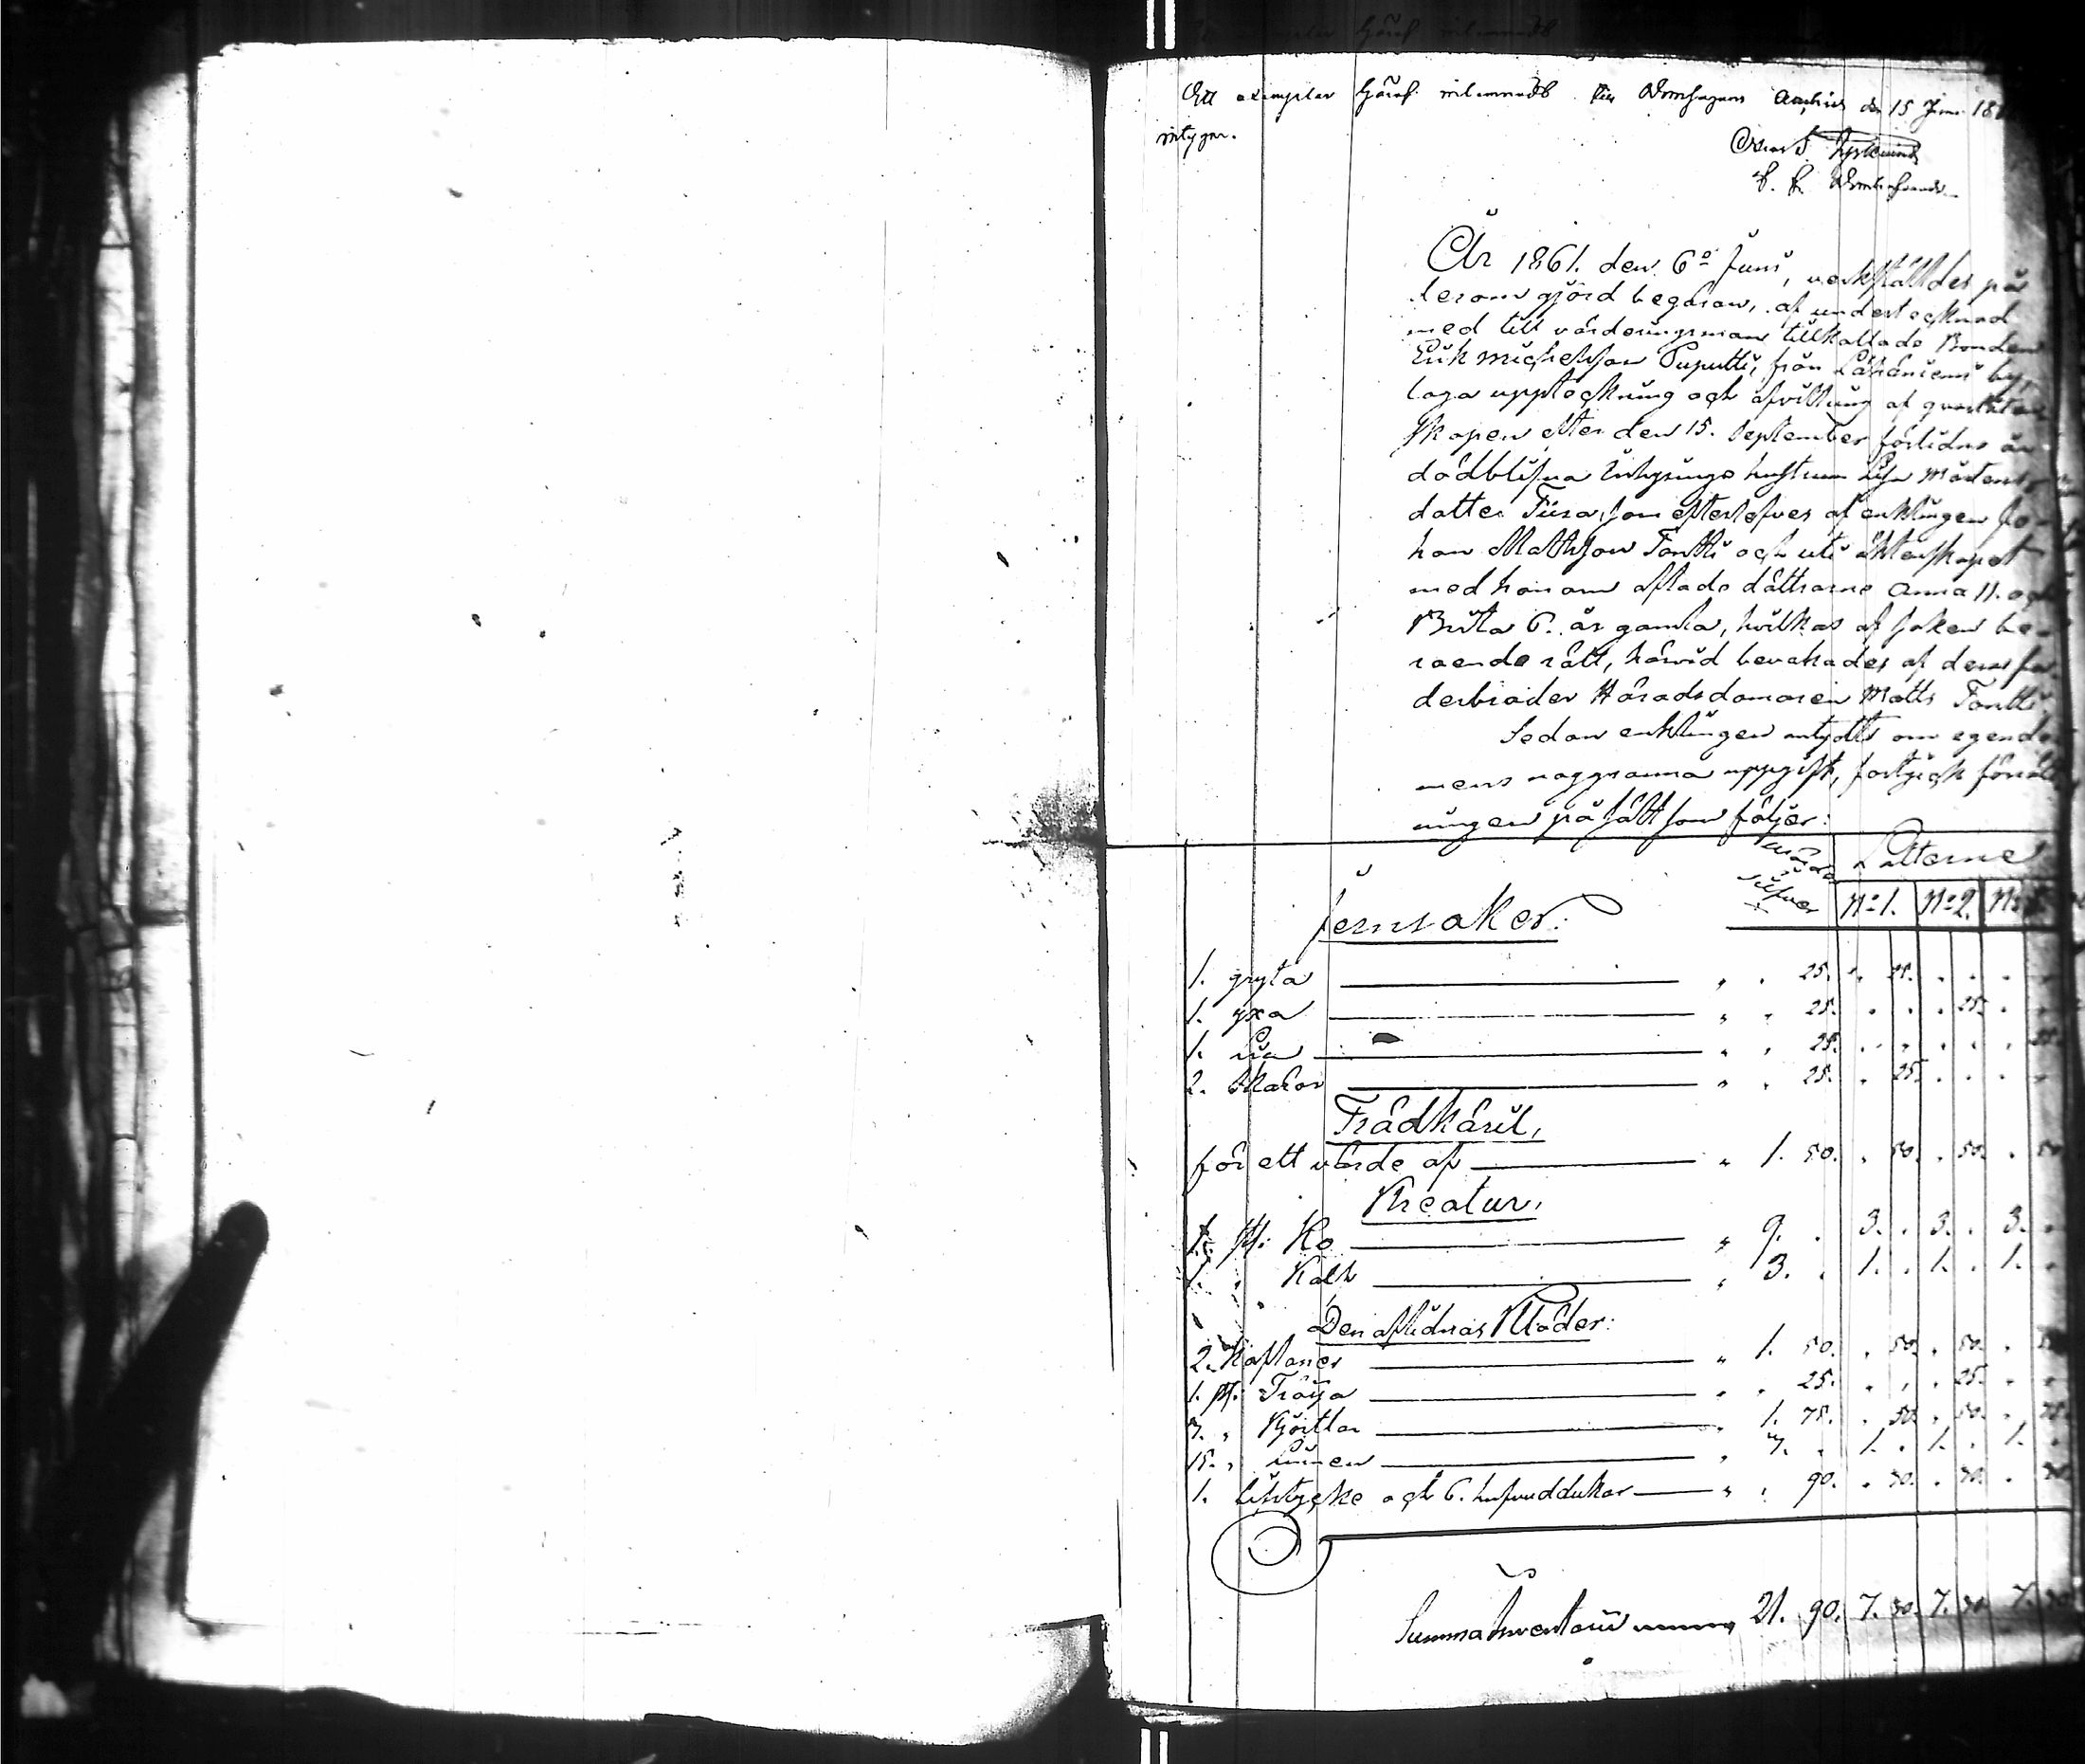 Ett exemplar häraf inlemnadt till Domhagens Archiv den 15 Juni 18
intygar.
År 1861. den 6º Juni, verkställdes på
derom gjord begäran, af undertecknad
med till värderingsman tillkallade Bonden
Erik Michelsson Puputti, från by,
laga uppteckning och afvittring af qvarlåten
skapen efter den 15. September förlidne år
dödblifna Inhysings hustrun Lisa Mårtens
dotter Tiira, som efterlefves af enklingen Jo
han Mattsson Tontti och uti äktenskapet
med honom aflade döttrarne Anna 11. och
Brita 6. år gamla, hvilkas af saken be
roende rätt, härvid bevakades af deras fa
derbroder Häradsdomaren Matts Tontti.
Sedan enklingen antydts om egendo
mens noggranna uppgift, fortgick förrätt
ningen på sätt som följer:
Silfver Lotterne
Jernsaker: Nº1. Nº2. Nº
1. gryta " . 25. . 25. . . . .
1. yxa " . 25. . . . 25. . .
1. Lia " . 25. . . . . . 25.
2. Skäror " . 25. . 25. . . . .
Trädkäril,
för ett värde af " 1. 50. . 50. . 50. . 50
Kreatur,
1. st: Ko " 9. . 3. . 3. . 3. .
1. " Kalf " 3. . 1. . 1. . 1. .
Den aflidnas Kläder:
2. Kaftaner " 1. 50. . 50. . 50. . 50
1. st: Tröija " . 25. . . . 25. . .
7. " Kjortlar " 1. 75. . 50. . 50. . 75.
15. " Linnen " 3. . 1. . 1. . 1. .
1. lifstycke och 6. hufvuddukar " . 90. . 30. . 30. . 30
Summa Inventarii 21. 90. 7. 30. 7. 30. 7. 30